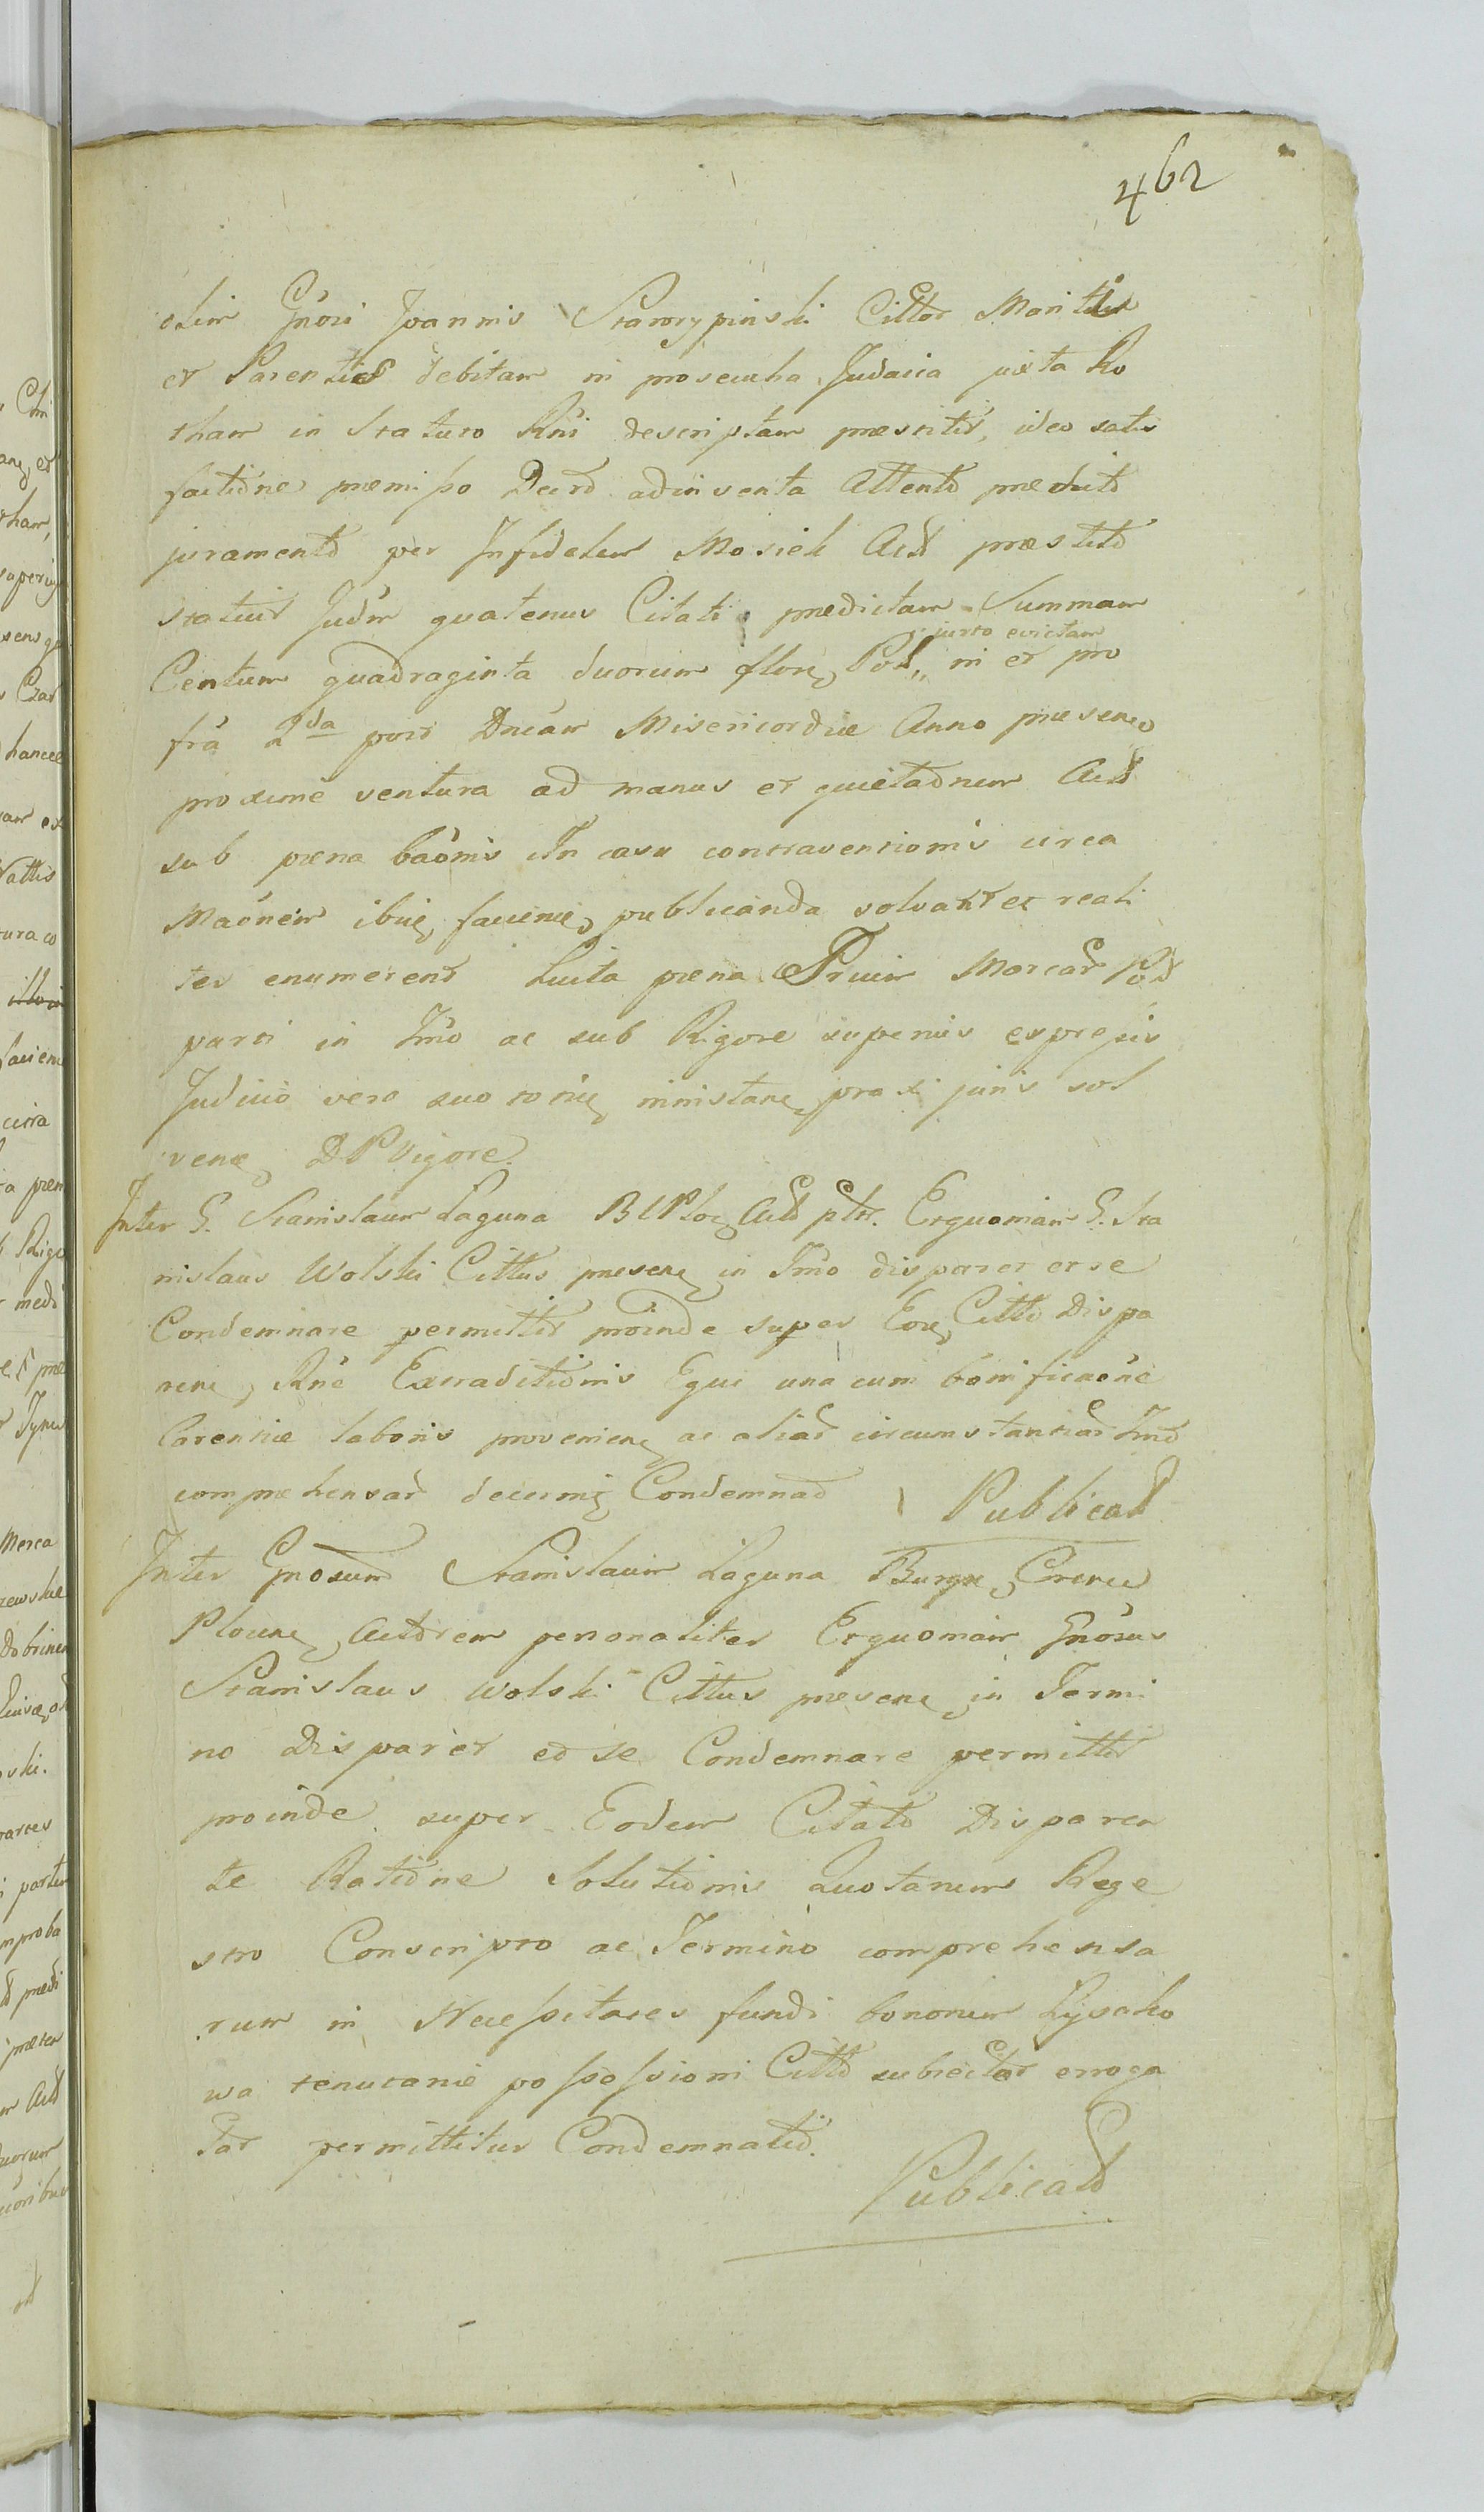 462
olim Gnosi Joannis Skarzypinski Cittor Maritus
et Parentis debitam in proseucha Judaica juxta Ro
tham in Statuto Rni descriptam praestitit, ideo satis
factione praemisso Decro adinventa Attento praevio
juramento per Infidelem Mosiek Act praestito
statuit Judm quatenus Citati praedictam Summam
juxto evictam
Centum quadraginta duorum flor Pol,, in et pro
fra 2da post Dncam Misericordiae Anno praesenc
proxime ventura ad manus et quietaonem Act
sub poena baonis In casu contraventionis circa
Maonem ibiq faciend publicanda solvant et reali
ter enumerent Luita poena Trium Marcar Pol
parti in Tmo ac sub Rigore superius expressis
Judicio vero suo ministang praxi juris sol
vena D P Vigore.
Inter G. Stanislaum Laguna B C Ploc Act pltr. Exquoniam G. Sta
nislaus Wolski Cittus praesens in Tmo disparet et se
Condemnare permittit proinde super Eod Citto Dispa
rene, Rne Extraditionis Equi una cum bonificaone
Carentiae laboris provenien ac aliar circumstantiar Tmo
comprehensar decerni Condemnao Publicat
Inter Gnosum Stanislaum Laguna Burgr Crencu
Plocens Actorem personaliter Exquoniam Gnosus
Stanislaus Wolski Cittus praesens in Termi
no Disparet et se Condemnare permittit
proinde super Eodem Citato Disparen
te Ratione Solutionis Quotarum Rege
stro Conscripto ac Termino comprehensa
rum in Necessitates fundi bonorum Lysako
wa tenutariae possessioni Citti subiector erroga
tar permittitur Condemnatio.
Publicat